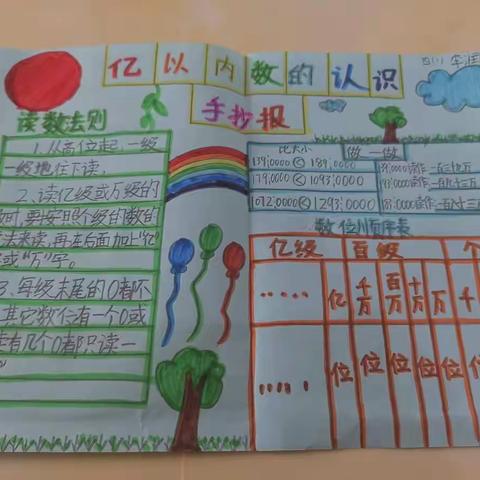 亿以内数的认识
手抄报
读数法则
1.从高位起,一级
一级地往下读,
2.读亿级或万级的
时,要按照个级的数的
法来读,再在后面加上"亿"
或"万"字。
3.每级末尾的0都不
其它数位有一个0或
有几个0都只读一
比大小
139,0000<189,0000
179,0000<1093,0000
1072,0000<1293,0000
做一做
数位顺序表
亿级 百级 个
…… 亿 千万 百万 十万 万 千
…… 位 位 位 位 位 位